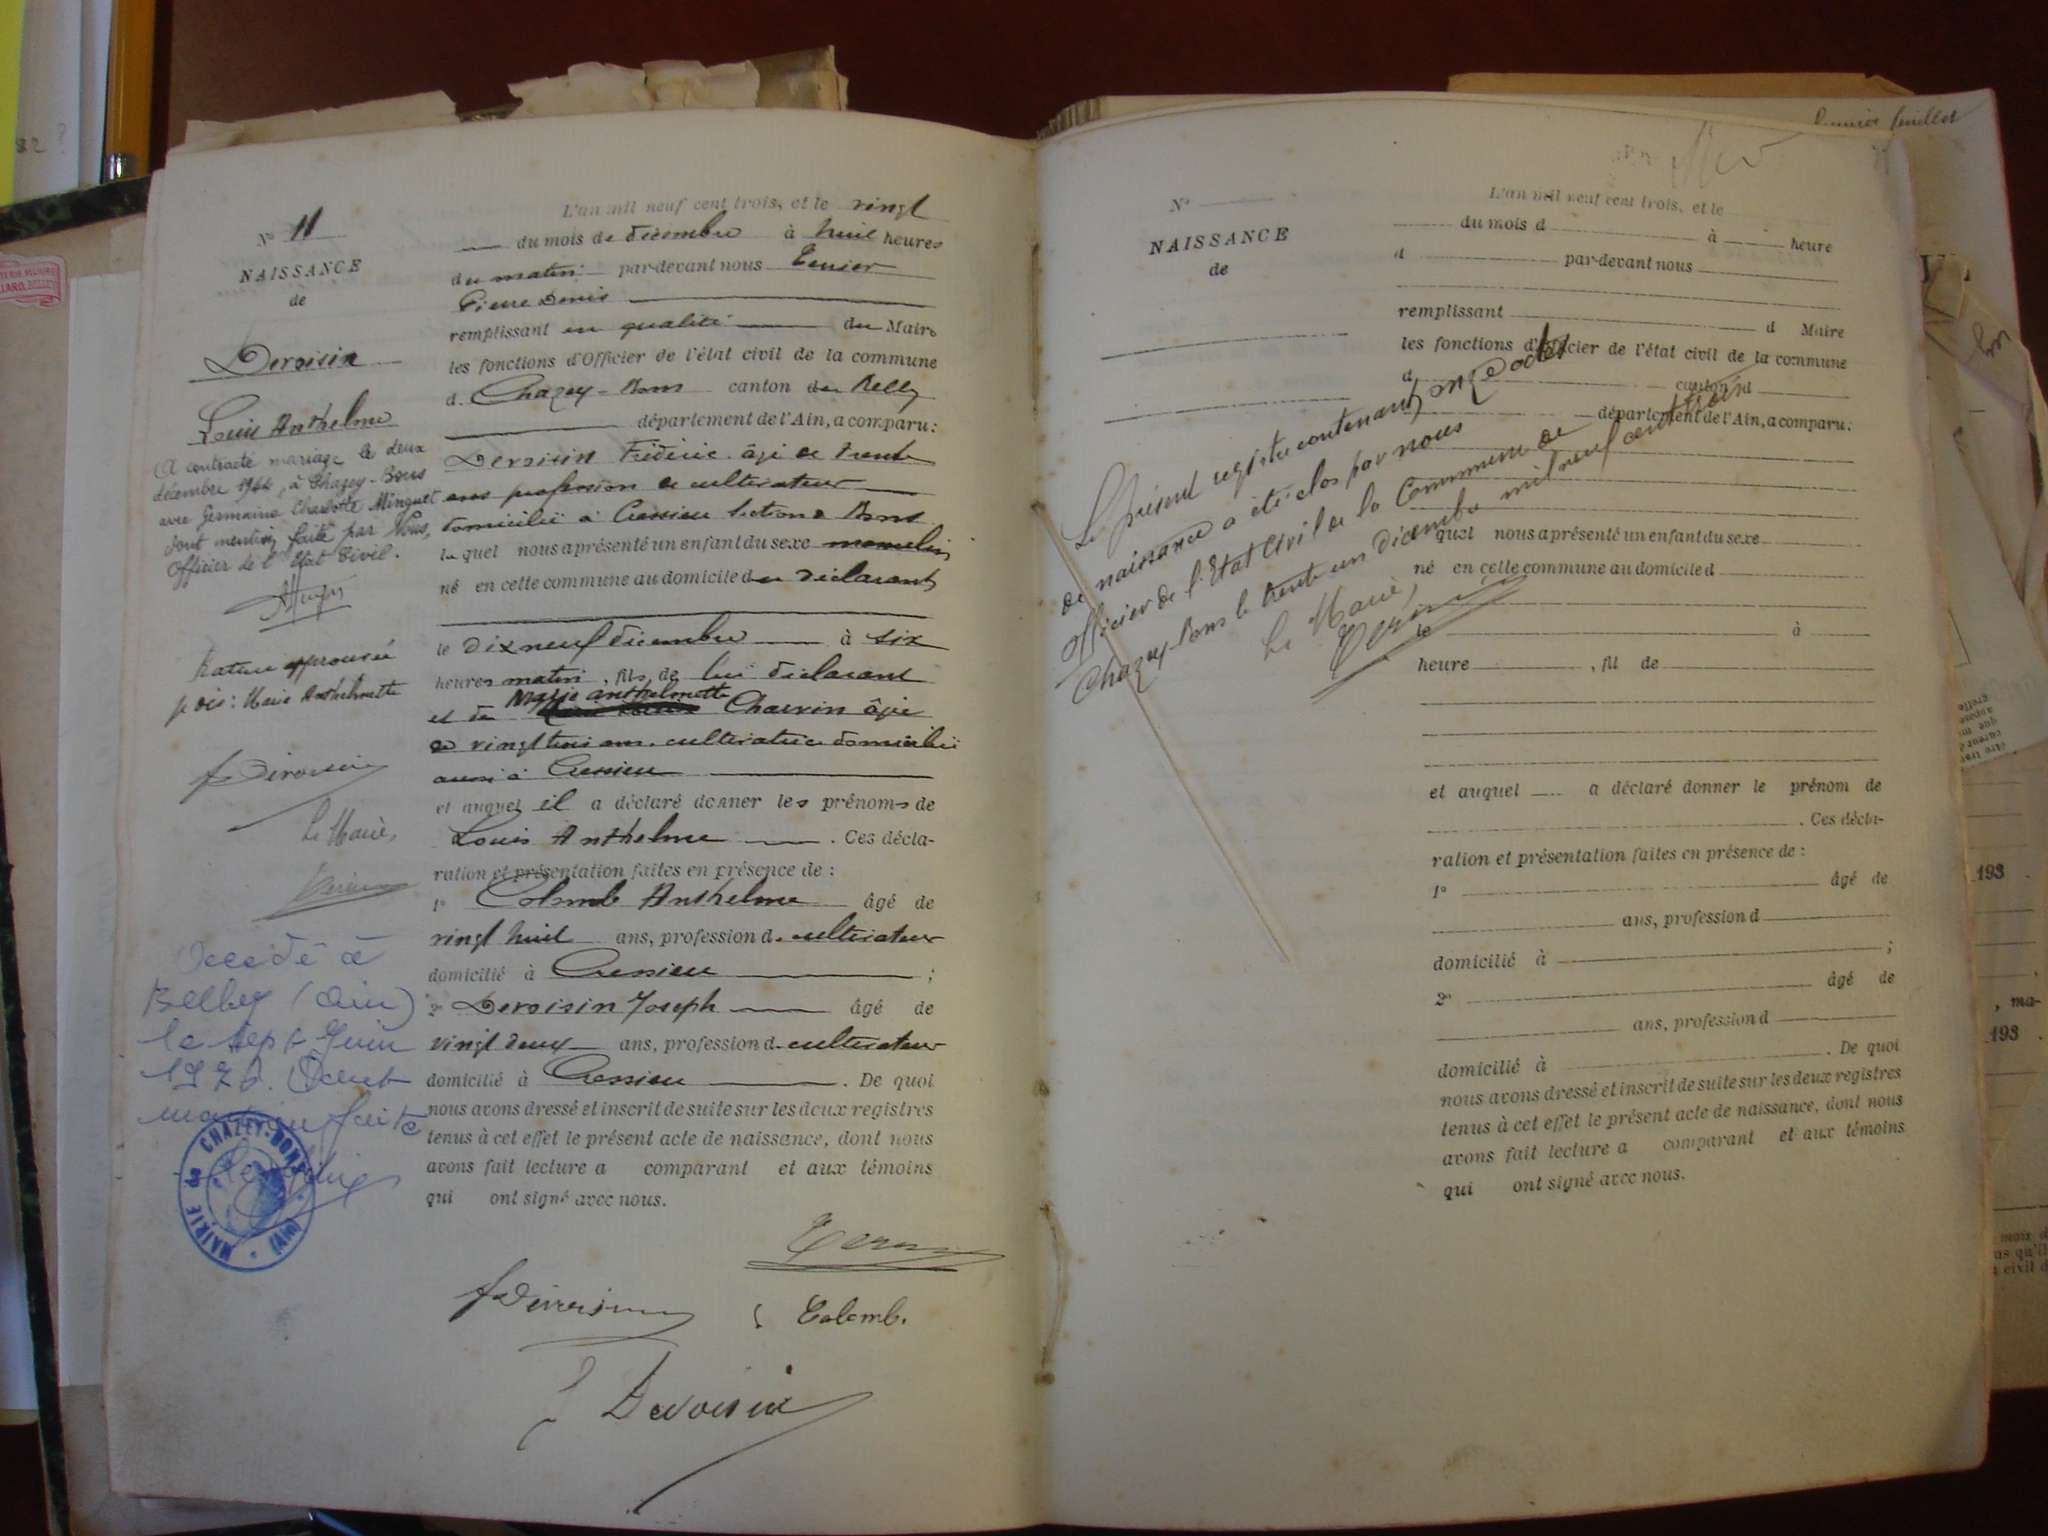 N° 11
NAISSANCE
de
Devoisin
Louis Anthelme
A contracté mariage le deux
décembre 1944, à Chazey-Bons
avec Germaine Charlotte Minguet
dont mention faite par Nous,
Officier de l'Etat Civil.
Rature approuvée
je dis : Marie Anthelmette
f Devoisin
Le Maire,
Décédé à
Belley (Ain)
le sept Juin
Dont
mention faite
MAIRIE DE CHAZEY-BONS (AIN)
L'an mil neuf cent trois, et le vingt
du mois de décembre à huit heures
du matin par-devant nous
Pierre Denis
remplissant en qualité du Maire
les fonctions d'Officier de l'état civil de la commune
d Chazey-Bons canton de Belley
département de l'Ain, a comparu :
Devoisin Frédéric âgé de trente
ans profession de cultivateur
domicilié à Cressieu section de Bons
lequel nous a présenté un enfant du sexe masculin
né en cette commune au domicile du déclarant
le dix neuf décembre à six
heures matin, fils de lui déclarant
et de Marie Anthelmette Charvin âgée
de vingt trois ans cultivatrice domiciliée
aussi à Cressieu
et auquel il a déclaré donner les prénoms de
Louis Anthelme . Ces décla-
ration et présentation faites en présence de :
1° Colomb Anthelme âgé de
vingt huit ans, profession d cultivateur
domicilié à Cressieu ;
2° Devoisin Joseph âgé de
vingt deux ans, profession d cultivateur
domicilié à Cressieu . De quoi
nous avons dressé et inscrit de suite sur les deux registres
tenus à cet effet le présent acte de naissance, dont nous
avons fait lecture a comparant et aux témoins
qui ont signé avec nous.
f Devoisin
Colomb.
J Devoisin
feuillet
N°
NAISSANCE
de
L'an mil neuf cent trois, et le
du mois d à heure
d par-devant nous
remplissant d Maire
les fonctions d'Officier de l'état civil de la commune
d canton d
département de l'Ain, a comparu :
quel nous a présenté un enfant du sexe
né en cette commune au domicile d
le à
heure , fil de
et auquel a déclaré donner le prénom de
. Ces décla-
ration et présentation faites en présence de :
1° âgé de
ans, profession d
domicilié à ;
2° âgé de
ans, profession d
domicilié à . De quoi
nous avons dressé et inscrit de suite sur les deux registres
tenus à cet effet le présent acte de naissance, dont nous
avons fait lecture a comparant et aux témoins
qui ont signé avec nous.
Le présent registre contenant onze actes
de naissance a été clos par nous
officier de l'Etat Civil de la Commune de
Chazey-Bons le trente un décembre mil neuf cent trois
Le Maire,
193
, ma-
193